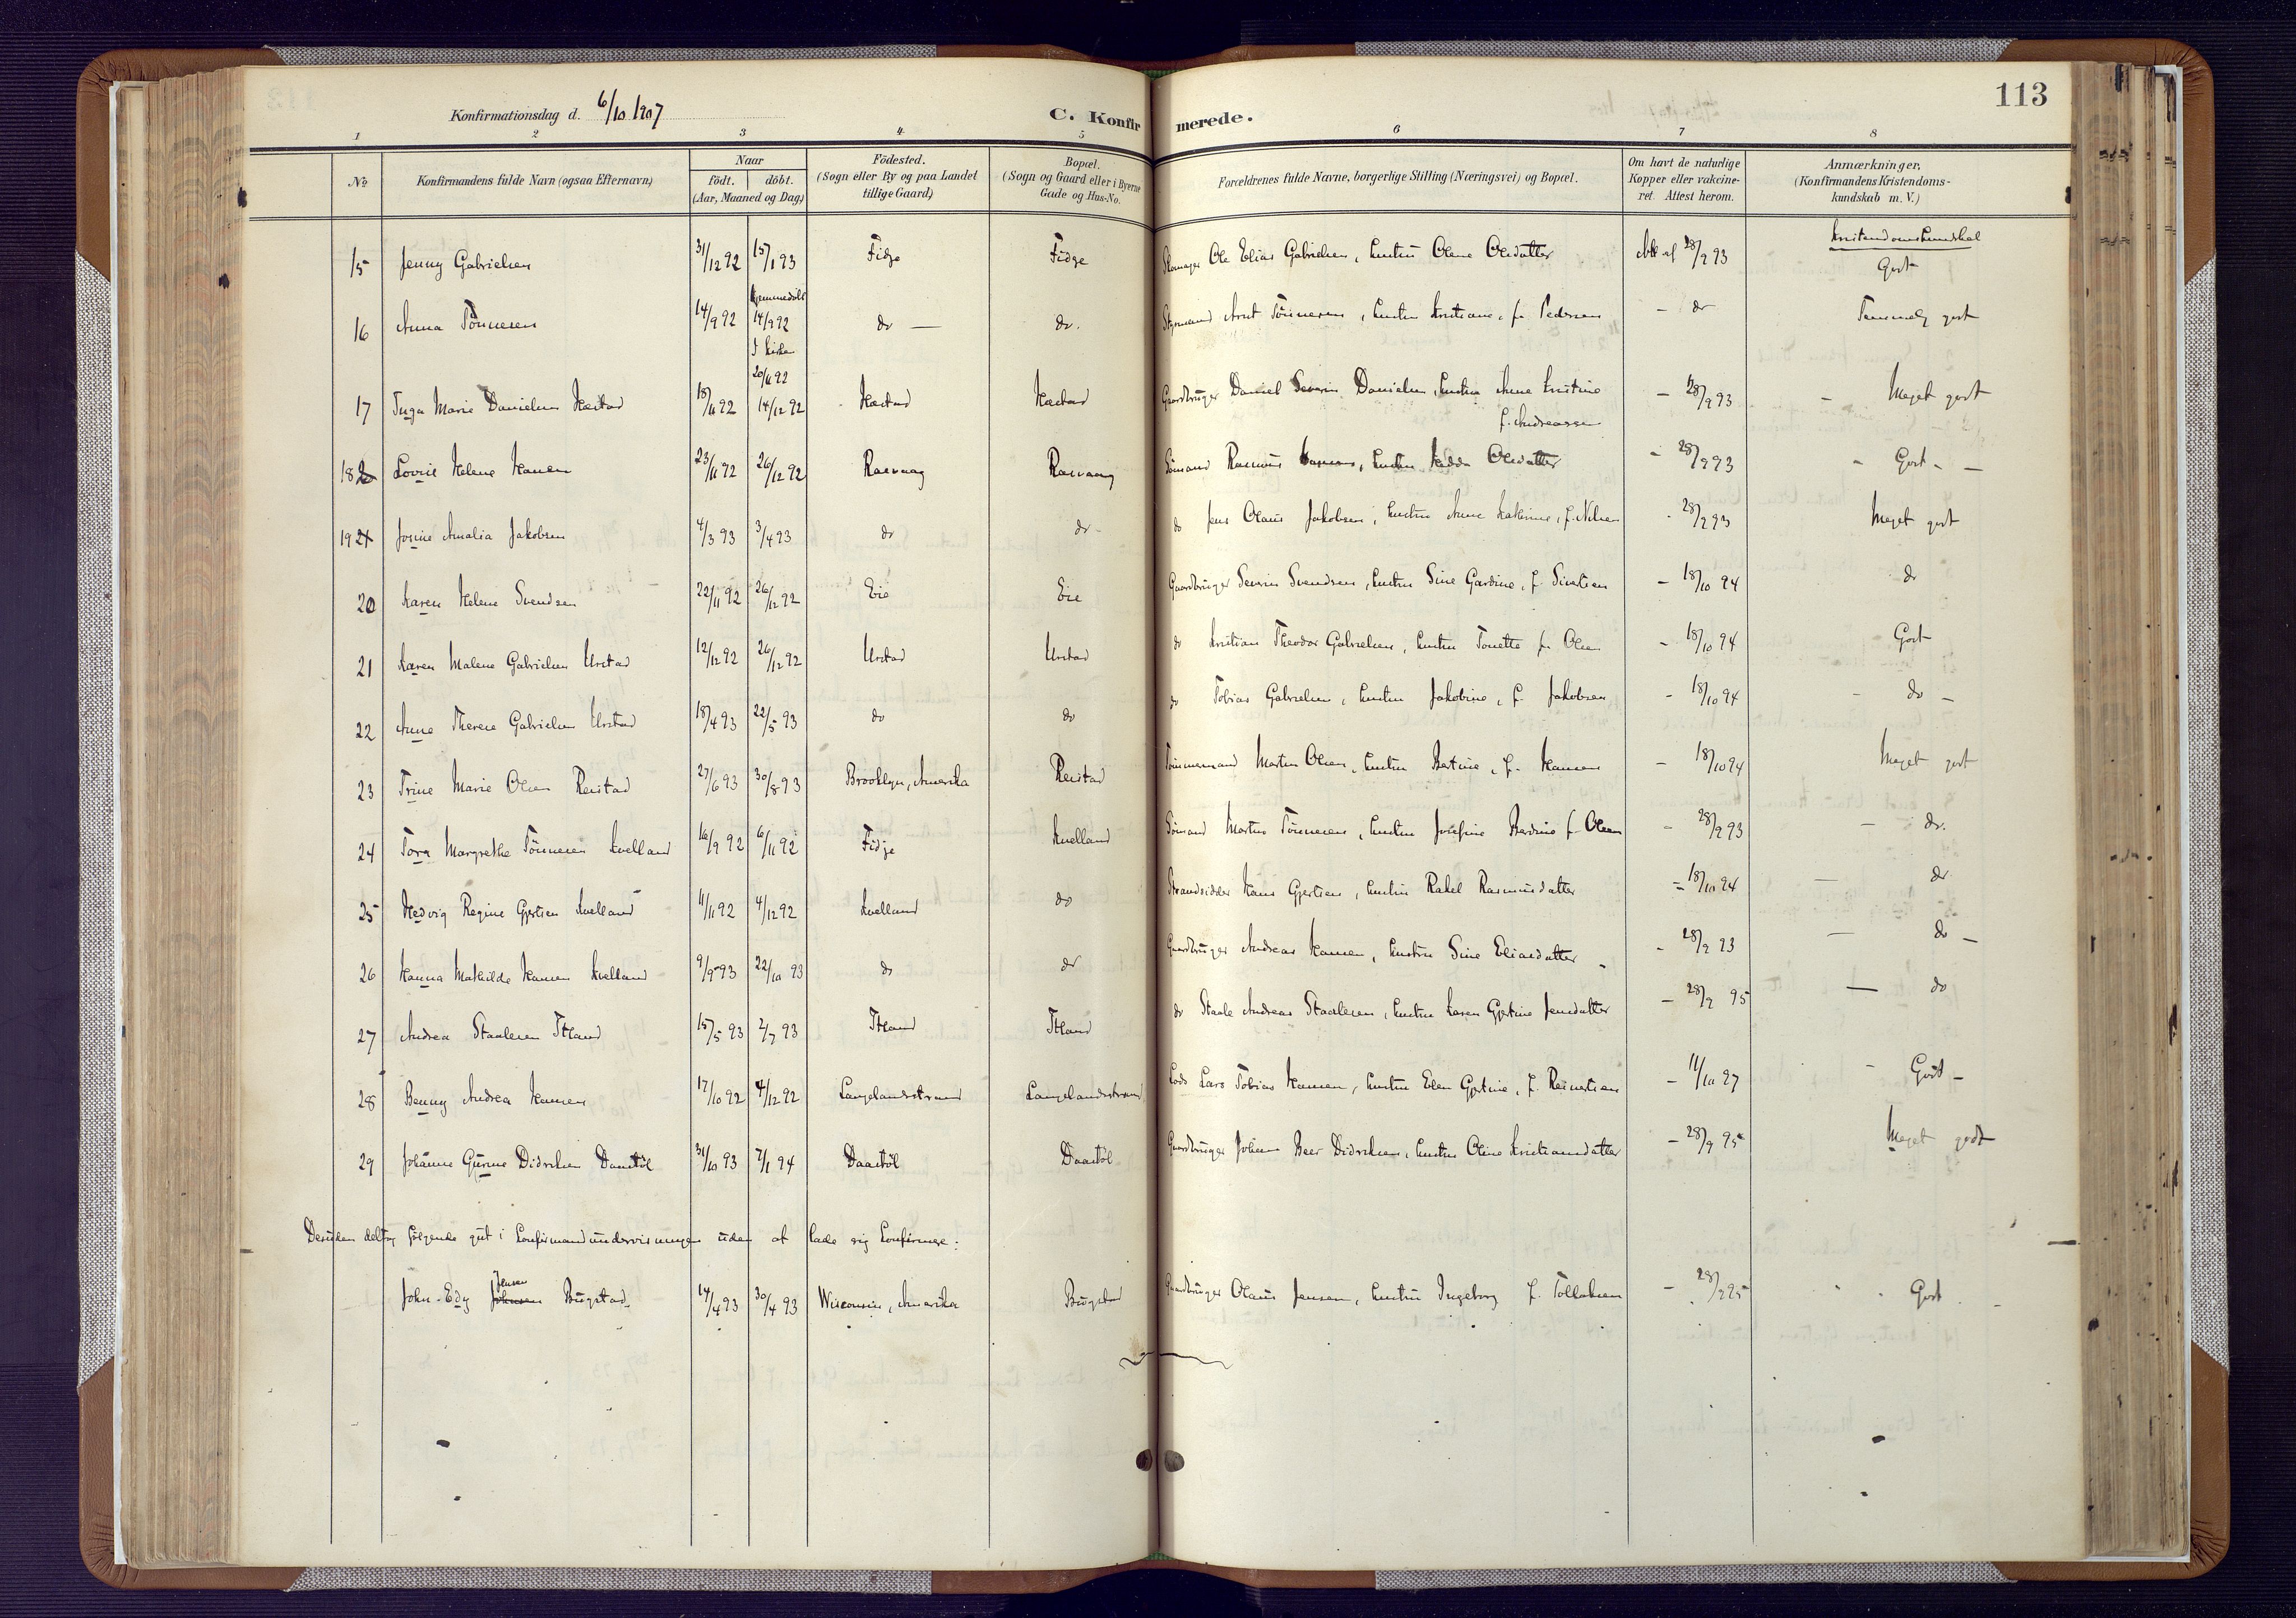 113
Konfirmationsdag d. 6/10 1907
C. Konfirmerede.
1 2 3 4 5 6 7 8
No Konfirmandens fulde Navn (ogsaa Efternavn)
Naar
født. døbt.
(Aar, Maaned og Dag)
Födested.
(Sogn eller By og paa Landet
tillige Gaard)
Bopæl.
(Sogn og Gaard eller i Byerne
Gade og Hus-No.
Forældrenes fulde Navne, borgerlige Stilling (Næringsvei) og Bopæl.
Om havt de naturlige
Kopper eller vakcine-
ret. Attest herom.
Anmærkninger,
(Konfirmandens Kristendoms-
kundskab m. V.)
Kristendomskundskab
15 Jenny Gabrielsen 31/12 92 15/1 93 Fidje Fidje Skomager Ole Elias Gabrielsen, hustru Olene Olsdatter Att af 28/9 93 Godt
16 Anna Tönnesen 14/9 92 Hjemmedöbt 14/9 92 I kirken 20/11 92 do — do. Styrmand Arnt Tönnesen, hustru Kristiane, f. Pedersen - do Temmelig godt
17 Inga Marie Danielsen Hæstad 18/11 92 14/12 92 Hæstad Hæstad Gaardbruger Daniel Severin Danielsen, hustru Anne Kristine
f. Andreassen - 28/9 93 - Meget godt
18 Lovise Helene Hansen 23/11 92 26/12 92 Rasvaag Rasvaag Sömand Rasmus Hansen, hustru Hedda Olsdatter - 28/9 93 - Godt - -
19 Josine Amalia Jakobsen 4/3 93 3/4 93 do do - do Jens Olaus Jakobsen, hustru Anne Kathrine, f. Nilsen - 28/9 93 Meget godt
20 Karen Helene Svendsen 22/11 92 26/12 92 Eie Eie Gaardbruger Severin Svendsen, hustru Sine Gardine, f. Sivertsen - 18/10 94 do
21 Karen Malene Gabrielsen Urstad 12/12 92 26/12 92 Urstad Urstad do Kristian Theodor Gabrielsen, hustru Tonette f. Olsen - 18/10 94 Godt
22 Anne Therese Gabrielsen Urstad 18/4 93 22/5 93 do do do Tobias Gabrielsen, hustru Jakobine, f. Jakobsen - 18/10 94 - do -
23 Trine Marie Olsen Reistad 27/6 93 30/8 93 Brooklyn, Amerika Reistad Tömmermand Martin Olsen, hustru Bertine, f. Hansen - 18/10 94 Meget godt
24 Tora Margrethe Tönnesen Kvelland 16/9 92 6/11 92 Fidje Kvelland Sömand Martin Tönnesen, hustru Josefine Berdine f. Olsen - 28/9 93 - do.
25 Hedvig Regine Gjertsen Kvelland 11/11 92 4/12 92 Kvelland do Strandsidder Hans Gjertsen, hustru Rakel Rasmusdatter - 18/10 94 - do
26 Hanna Mathilde Hansen Kvelland 9/9 93 22/10 93 do do Gaardbruger Andreas Hansen, hustru Sine Eliasdatter - 28/9 93 - do -
27 Andrea Staalesen Itland 15/5 93 2/7 93 Itland Itland do Staale Andreas Staalesen, hustru Karen Gjertine Jensdatter - 28/9 95 - do
28 Benny Andrea Hansen 17/10 92 4/12 92 Langelandsstrand Langelandsstrand Lods Lars Tobias Hansen, hustru Elen Gjertine, f. Reinertsen - 11/10 97 - Godt -
29 Johanne Gurine Didriksen Daastöl 31/10 93 7/1 94 Daastöl Daastöl Gaardbruger Johan Beer Didriksen, hustru Oline Kristiansdatter - 28/9 95 Meget godt
Desuden deltog fölgende gut i Konfirmandundervisningen uden at lade sig konfirmere:
John-Edy Johnsen Jensen Bugstad 14/4 93 30/4 93 Wisconsin, Amerika Bugstad Gaardbruger Olaus Jensen, hustru Ingeborg f. Tollaksen - 28/9 95 - Godt -